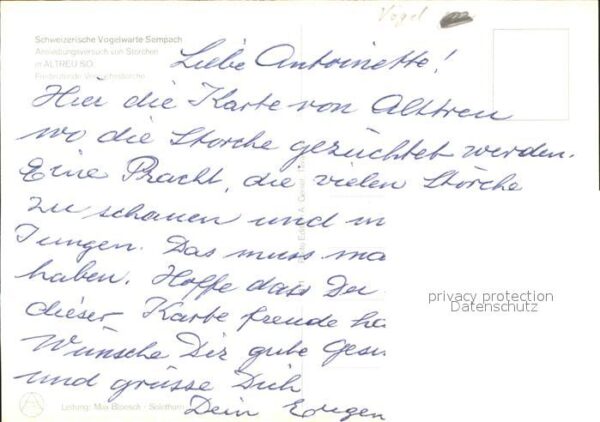 Vogel
Schweizerische Vogelwarte Sempach
Ansiedlungsversuch von Störchen
in ALTREU SO
Freibrütende Versuchsstörche
Liebe Antoinette!
Hier die Karte von Alttreu
wo die Störche gezüchtet werden.
Eine Pracht, die vielen Störche
zu schauen und m
Jungen. Das muss ma
haben. Hoffe dass Du
dieser Karte freude ha
Wünsche Dir gute Gesu
und grüsse Dich
Dein Eugen
privacy protection
Datenschutz
Leitung: Max Bloesch - Solothurn